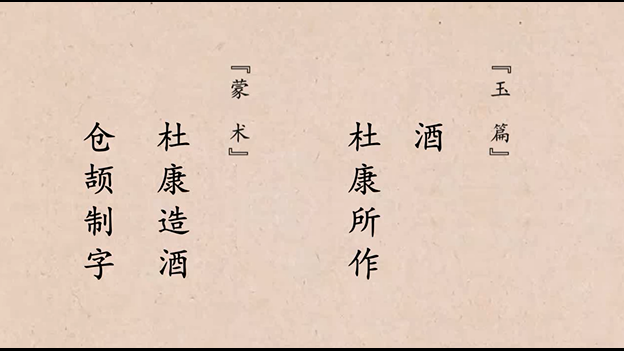 『玉篇』
酒
杜康所作
『蒙术』
杜康造酒
仓颉制字